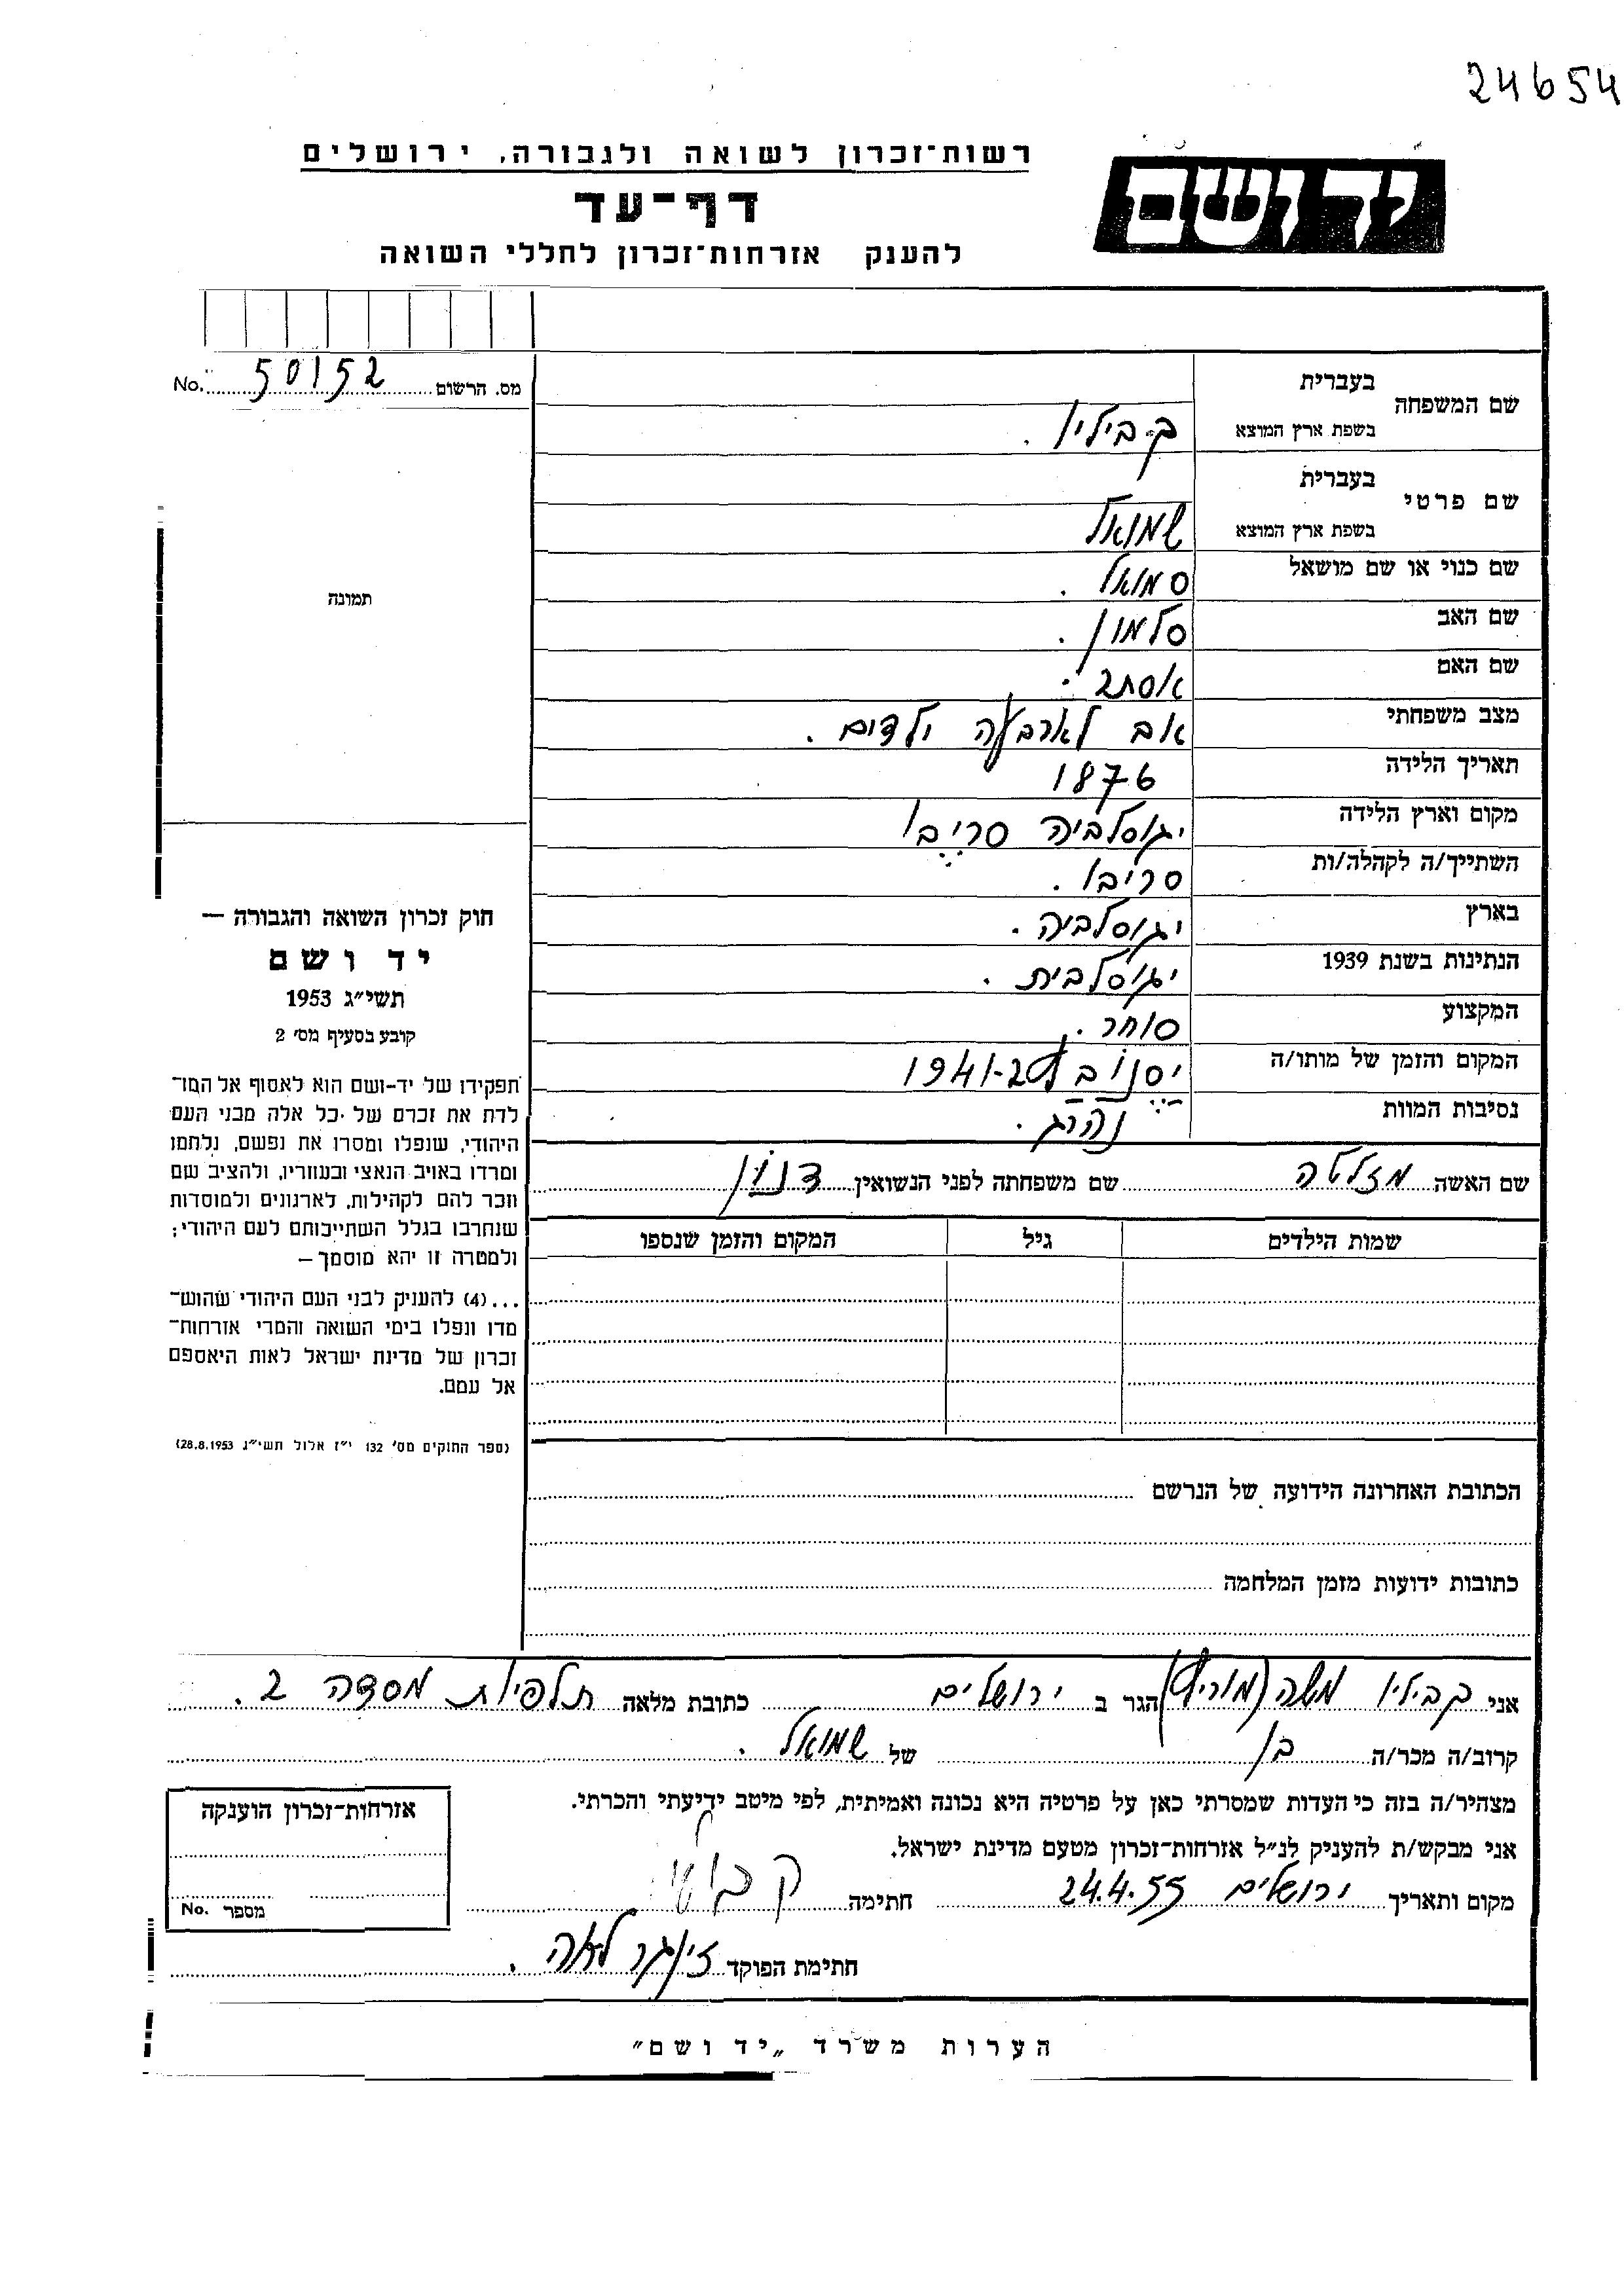 24654
רשות־זכרון לשואה ולגבורה, ירושלים
יד ושם
דף־עד
להענק אזרחות־זכרון לחללי השואה
מס. הרשום 50152 No.
שם המשפחה
בעברית
בשפת ארץ המוצא
קביליו.
שם פרטי
בעברית
בשפת ארץ המוצא
שמואל
שם כנוי או שם מושאל סמואל.
שם האב סלמון.
שם האם אסתר.
מצב משפחתי אב לארבעה ילדים.
תאריך הלידה 1876
מקום וארץ הלידה יגוסלביה סריבו
השתייך/ה לקהלה/ות סריבו.
בארץ יגוסלביה.
הנתינות בשנת 1939 יגוסלבית.
המקצוע סוחר.
המקום והזמן של מותו/ה 1941-2
נסיבות המוות נהרג.
תמונה
חוק זכרון השואה והגבורה —
יד ושם
תשי״ג 1953
קובע בסעיף מס׳ 2
תפקידו של יד-ושם הוא לאסוף אל המו־
לדת את זכרם של כל אלה מבני העם
היהודי, שנפלו ומסרו את נפשם, נלחמו
ומרדו באויב הנאצי ובעוזריו, ולהציב שם
וזכר להם לקהילות, לארגונים ולמוסדות
שנחרבו בגלל השתייכותם לעם היהודי;
ולמטרה זו יהא מוסמך —
...(4) להעניק לבני העם היהודי שהוש־
מדו ונפלו בימי השואה והמרי אזרחות־
זכרון של מדינת ישראל לאות היאספם
אל עמם.
(ספר החוקים מס׳ 132 י״ז אלול תשי״ג 28.8.1953)
שם האשה מזלטה שם משפחתה לפני הנשואין דנון
שמות הילדים גיל המקום והזמן שנספו
הכתובת האחרונה הידועה של הנרשם
כתובות ידועות מזמן המלחמה
אני קביליו משה (מוריץ) הגר ב ירושלים כתובת מלאה תלפיות מסדה 2.
קרוב/ה מכר/ה בן של שמואל.
מצהיר/ה בזה כי העדות שמסרתי כאן על פרטיה היא נכונה ואמיתית, לפי מיטב ידיעתי והכרתי.
אני מבקש/ת להעניק לנ״ל אזרחות־זכרון מטעם מדינת ישראל.
מקום ותאריך ירושלים 24.4.55 חתימה
חתימת הפוקד זינגר לאה.
אזרחות־זכרון הוענקה
מספר No.
הערות משרד „יד ושם״